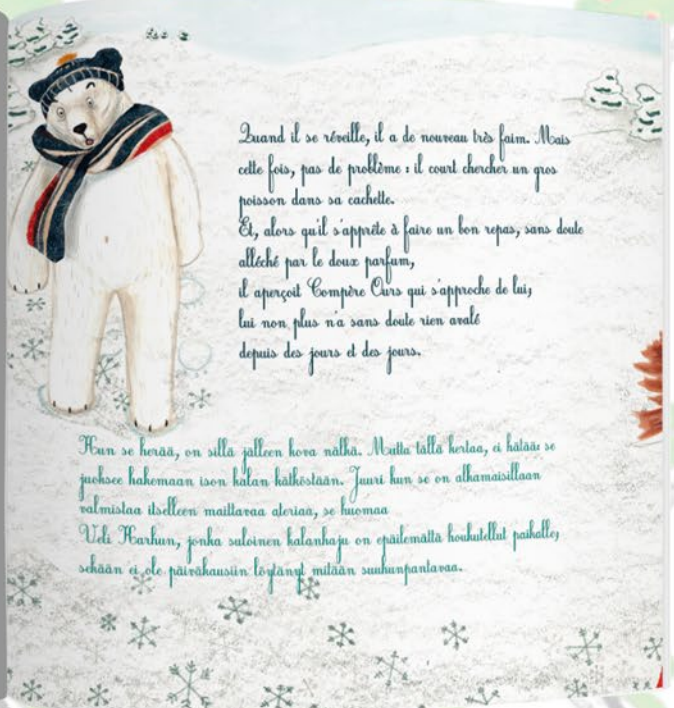 Quand il se réveille, il a de nouveau très faim. Mais
cette fois, pas de problème : il court chercher un gros
poisson dans sa cachette.
Et, alors qu'il s'apprête à faire un bon repas, sans doute
alléché par le doux parfum,
il aperçoit Compère Ours qui s'approche de lui,
lui non plus n'a sans doute rien avalé
depuis des jours et des jours.
Kun se herää, on sillä jälleen kova nälkä. Mutta tällä kertaa, ei hätää: se
juoksee hakemaan ison kalan kätköstään. Juuri kun se on alkamaisillaan
valmistaa itselleen maittavaa ateriaa, se huomaa
Veli Karhun, jonka suloinen kalanhaju on epäilemättä houkutellut paikalle,
sekään ei ole päiväkausiin löytänyt mitään suuhunpantavaa.